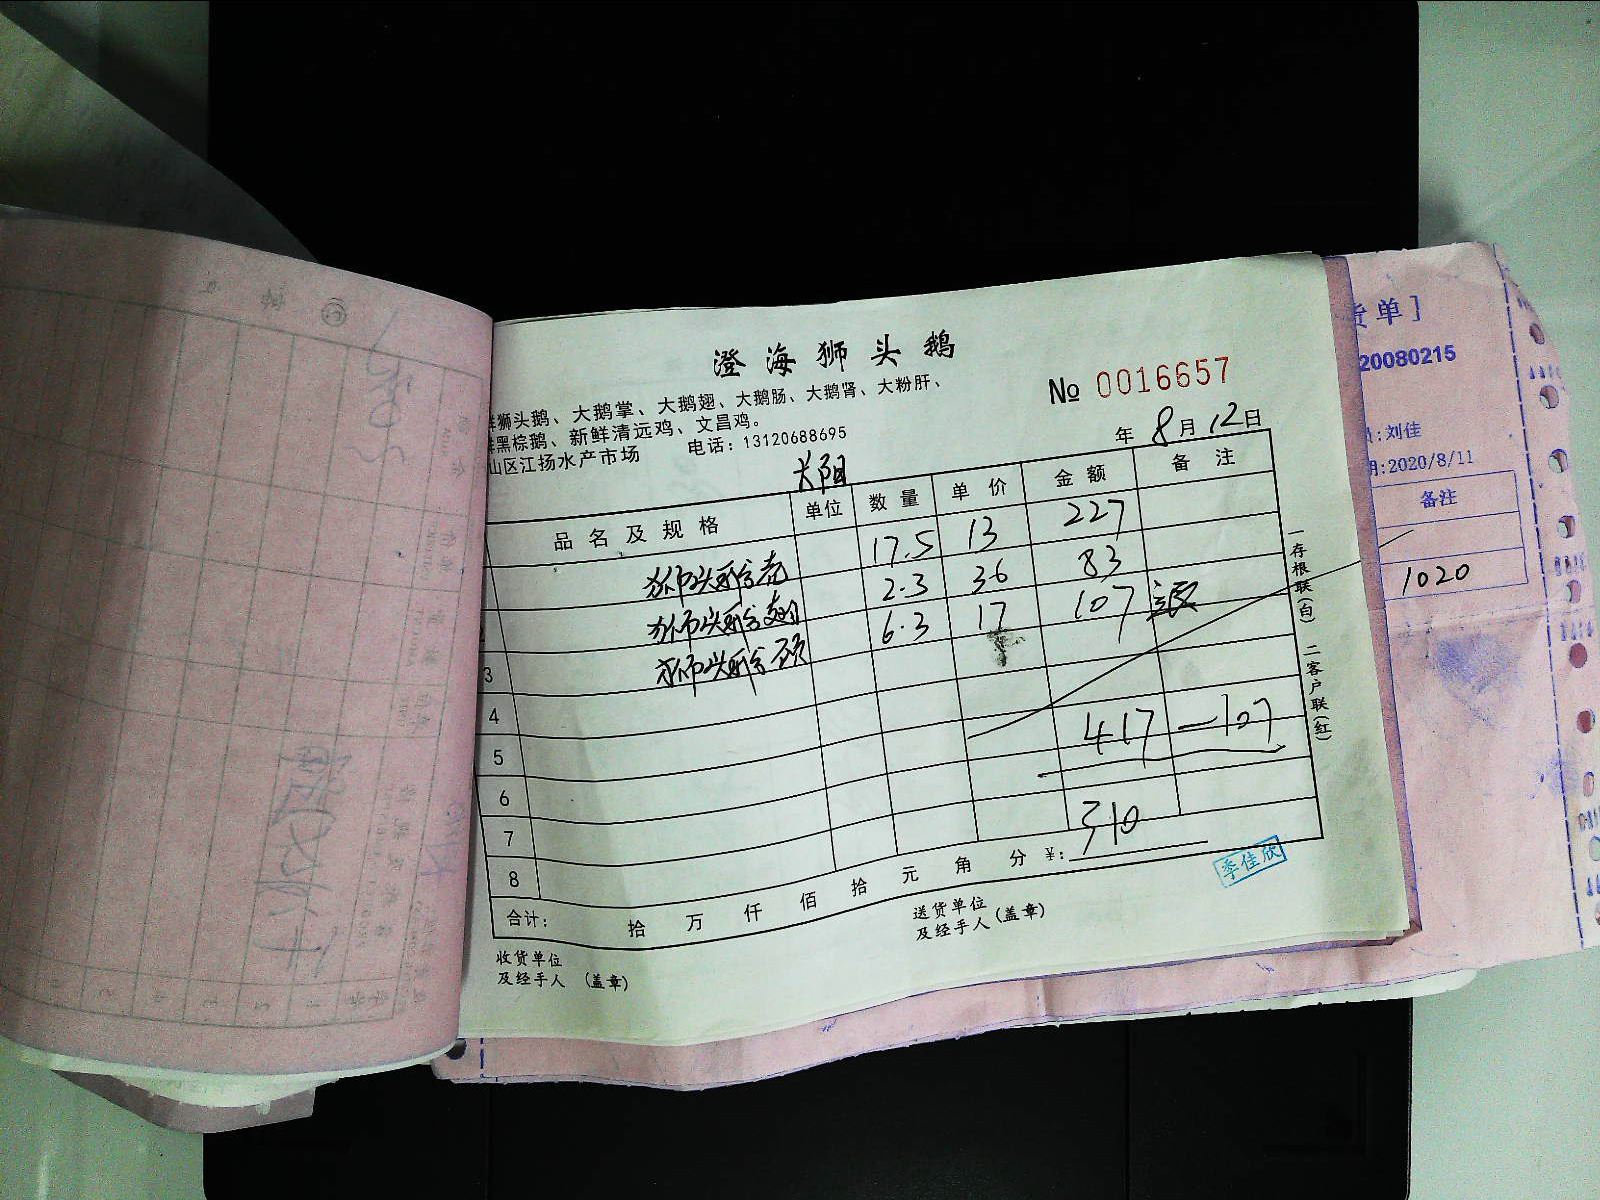 澄海狮头鹅
№ 0016657
鲜狮头鹅、大鹅掌、大鹅翅、大鹅肠、大鹅肾、大粉肝、
鲜黑棕鹅、新鲜清远鸡、文昌鸡。
山区江扬水产市场 电话：13120688695
年 8月12日
品名及规格 单位 数量 单价 金额 备注
狮头鹅壳 17.5 13 227
狮头鹅翅 2.3 36 83
3 狮头鹅颈 6.3 17 107 退
4
5 417 —107
6
7 310
8
合计： 拾 万 仟 佰 拾 元 角 分 ¥：
收货单位
及经手人 （盖章）
送货单位
及经手人（盖章）
李佳欣
一存根联（白） 二客户联（红）
货单]
20080215
:刘佳
期:2020/8/11
备注
1020